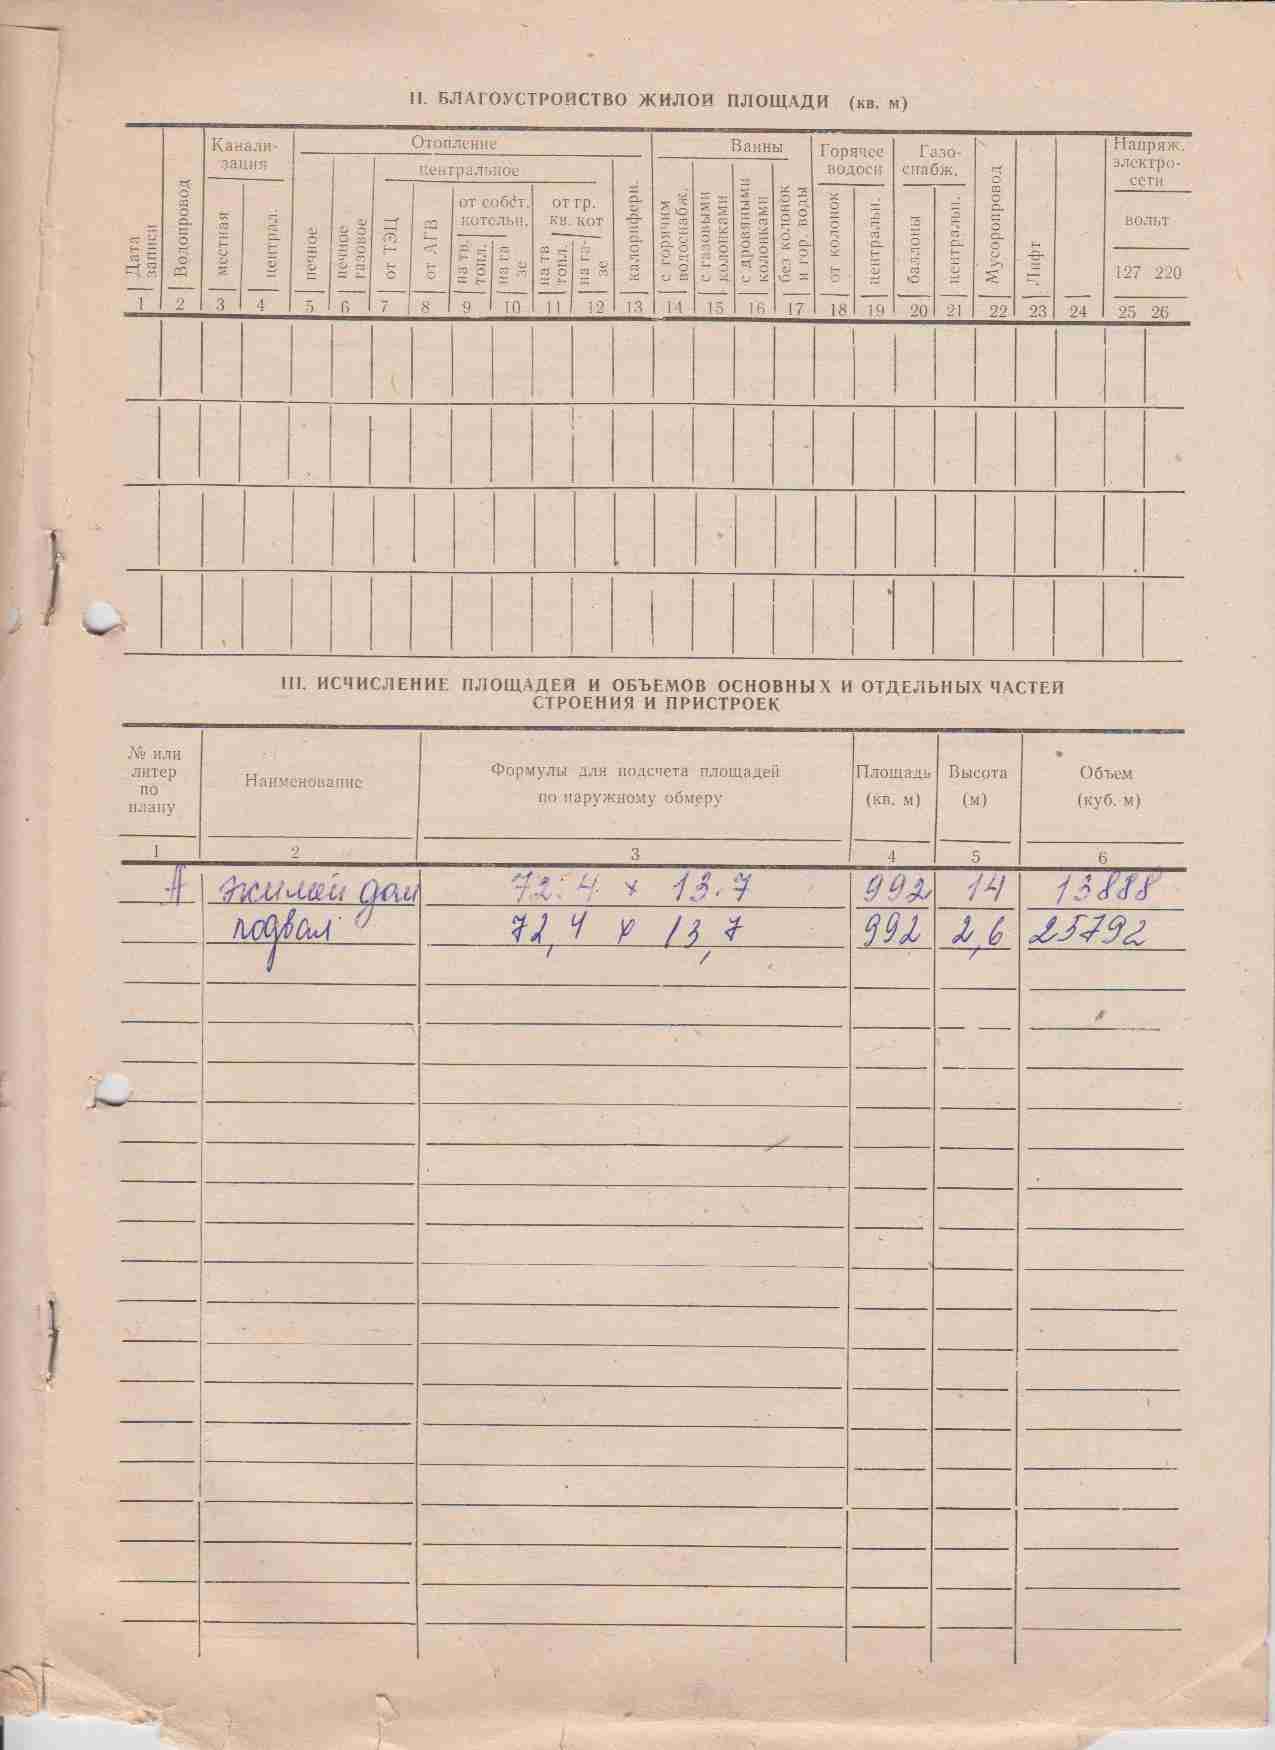 II. БЛАГОУСТРОЙСТВО ЖИЛОЙ ПЛОЩАДИ (кв. м)
Дата записи
Водопровод
Канали-
зация
местная
централ.
Отопление
печное
печное газовое
центральное
от ТЭЦ
от АГВ
от собст.
котельн.
на тв. топл.
на га
зе
от гр.
кв. кот
на тв топл.
на га-
зе
калорифери.
Ванны
с горячим водоснабж.
с газовыми колонками
с дровяными колонками
без колонок и гор. воды
Горячее
водосн
от колонок
центральн.
Газо-
снабж.
баллоны
центральн.
Мусоропровод
Лифт
Напряж.
электро-
сети
вольт
127 220
1 2 3 4 5 6 7 8 9 10 11 12 13 14 15 16 17 18 19 20 21 22 23 24 25 26
III. ИСЧИСЛЕНИЕ ПЛОЩАДЕЙ И ОБЪЕМОВ ОСНОВНЫХ И ОТДЕЛЬНЫХ ЧАСТЕЙ
СТРОЕНИЯ И ПРИСТРОЕК
№ или
литер
по
плану
Наименование
Формулы для подсчета площадей
по наружному обмеру
Площадь
(кв. м)
Высота
(м)
Объем
(куб. м)
1 2 3 4 5 6
А жилой дом 72.4 × 13.7 992 14 13888
подвал 72,4 × 13,7 992 2,6 25792